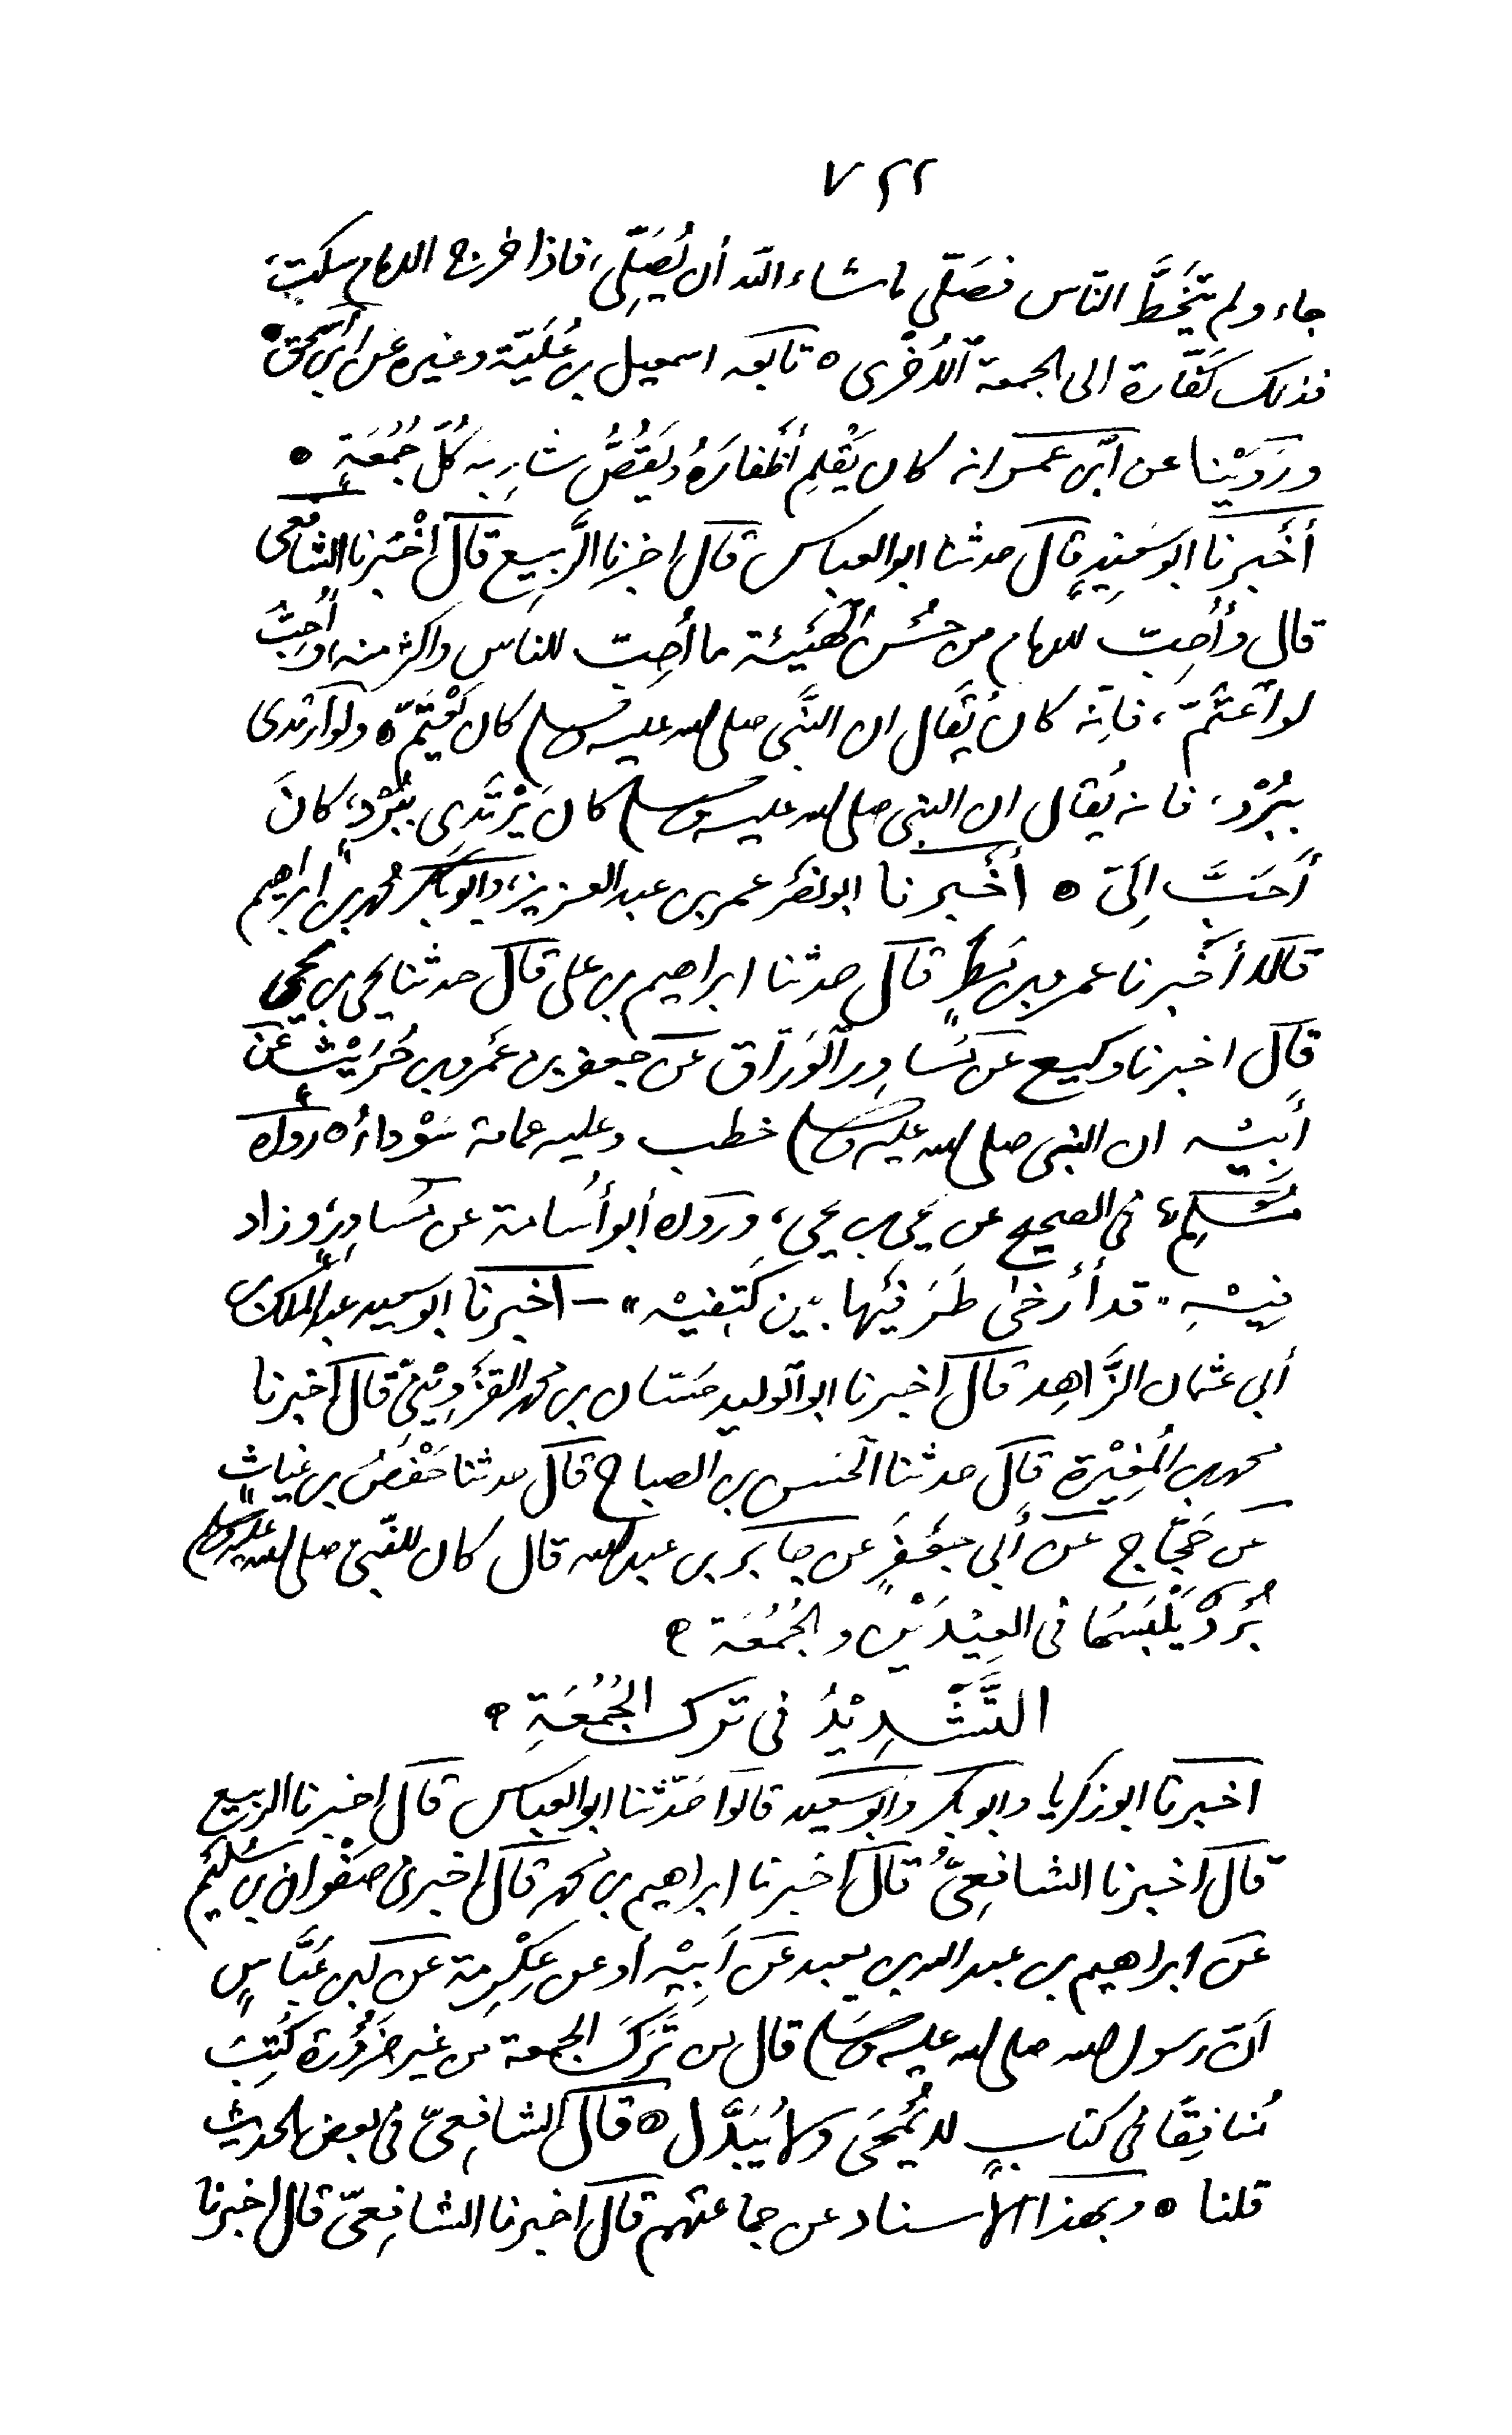 ٧٢٢
جاء ولم يتخَطَّ الناس فصَلّى ما شاء الله أن يُصَلِّى، فاذا خرج الامام سكت،
فذلك كَفّارة الى الجمعة الأُخْرى ٥ تابعه اسمعيل بن عُلَيّة وغيره عن ابن إسحق ٥
ورَوَيْنا عن ابن عمر انه كان يَقْلِم أظْفارَهُ ويَقُصُّ شارِبَه كُلّ جُمُعَةٍ ٥
أخبرنا ابو سَعِيْدٍ قال حدثنا ابو العباس قال اخبرنا الرَّبِيع قال أخْبَرنا الشافعى
قال وأُحِبّ للامام من حُسْن الهَيْئة ما أُحِبّ للناس واكثر منه، وأُحِبُّ
لو اعْتَمّ، فاِنّه كان يُقال ان النَّبى صلى الله عليه وسلم كان يَعْتَمّ ٥ ولو ارتدى
بِبُرْد، فانه يُقال ان النبى صلى الله عليه وسلم كان يَرْتَدِى بِبُرْدٍ، كانَ
أحَبَّ اِلَىّ ٥ أخْبرنا ابو نَصْر عمر بن عبد العزيز، وابو بكر محمد بن ابراهيم
قالا أخْبرنا عمرو بن مَطَرٍ قال حدثنا ابراهيم بن على قال حدثنا يحيى بن يحيى
قال اخبرنا وكيع عن مُساوِر الوَرّاق عن جعفر بن عَمْرو بن حُرَيْثٍ عَنْ
أبِيْهِ ان النبى صلى الله عليه وسلم خطب وعليه عمامة سَوْداءُ ٥ رواه
مُسْلِم، فى الصحيح عن يحيى بن يحيى، ورواه أبو أُسامة عن مُساوِرٍ، وزاد
فِيْهِ "قد أرْخى طَرَفَيْها بين كَتِفَيْه" – اخبرنا ابو سعيد عبد الملك بن
أبى عثمان الزَّاهِد قال اخبرنا ابو الوليد حَسّان بن محمد القَزْوِيْنِىّ قال اخبرنا
محمد بن المُغِيْرة قال حدثنا الحسن بن الصباح قال حدثنا حَفْصُ بن غياثٍ
عن حَجّاج عن أبى جَعْفَرٍ عن جابر بن عبد الله قال كان للنَّبى صلى الله عليه وسلم
بُرْدٌ يَلْبَسُها فى العِيْدَيْن والجُمُعَة ٥
التَّشْدِيْدُ فى ترك الجُمُعَةِ ٥
اخبرنا ابو زكريا وابو بكر وابو سعيد قالوا حَدّثنا ابو العباس قال اخبرنا الربيع
قال اخبرنا الشافِعِىُّ قال اخبرنا ابراهيم بن محمد قال اخبرنى صَفْوان بن سُلَيْم
عن ابراهيم بن عبد الله بن معبد عن أبِيْه أو عن عِكْرِمة عن ابن عَبَّاسٍ
أنّ رسول الله صلى الله عليه وسلم قال من تَرَكَ الجمعة من غير ضَرُوْرة كُتِبَ
مُنافِقًا فى كتابٍ لا يُمْحَى ولا يُبَدَّل ٥ قال الشافِعِىّ فى بعض الحديث
قلنا ٥ وبهذا الأسناد عن جماعتهم قال اخبرنا الشافِعِىّ قال اخبرنا